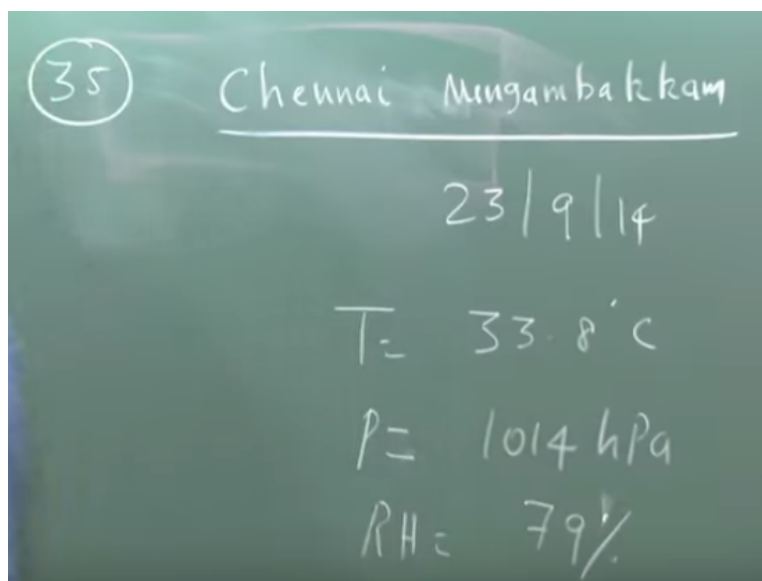 35 Chennai Mungambakkam
23/9/14
T= 33.8°C
P= 1014 hPa
RH= 79%